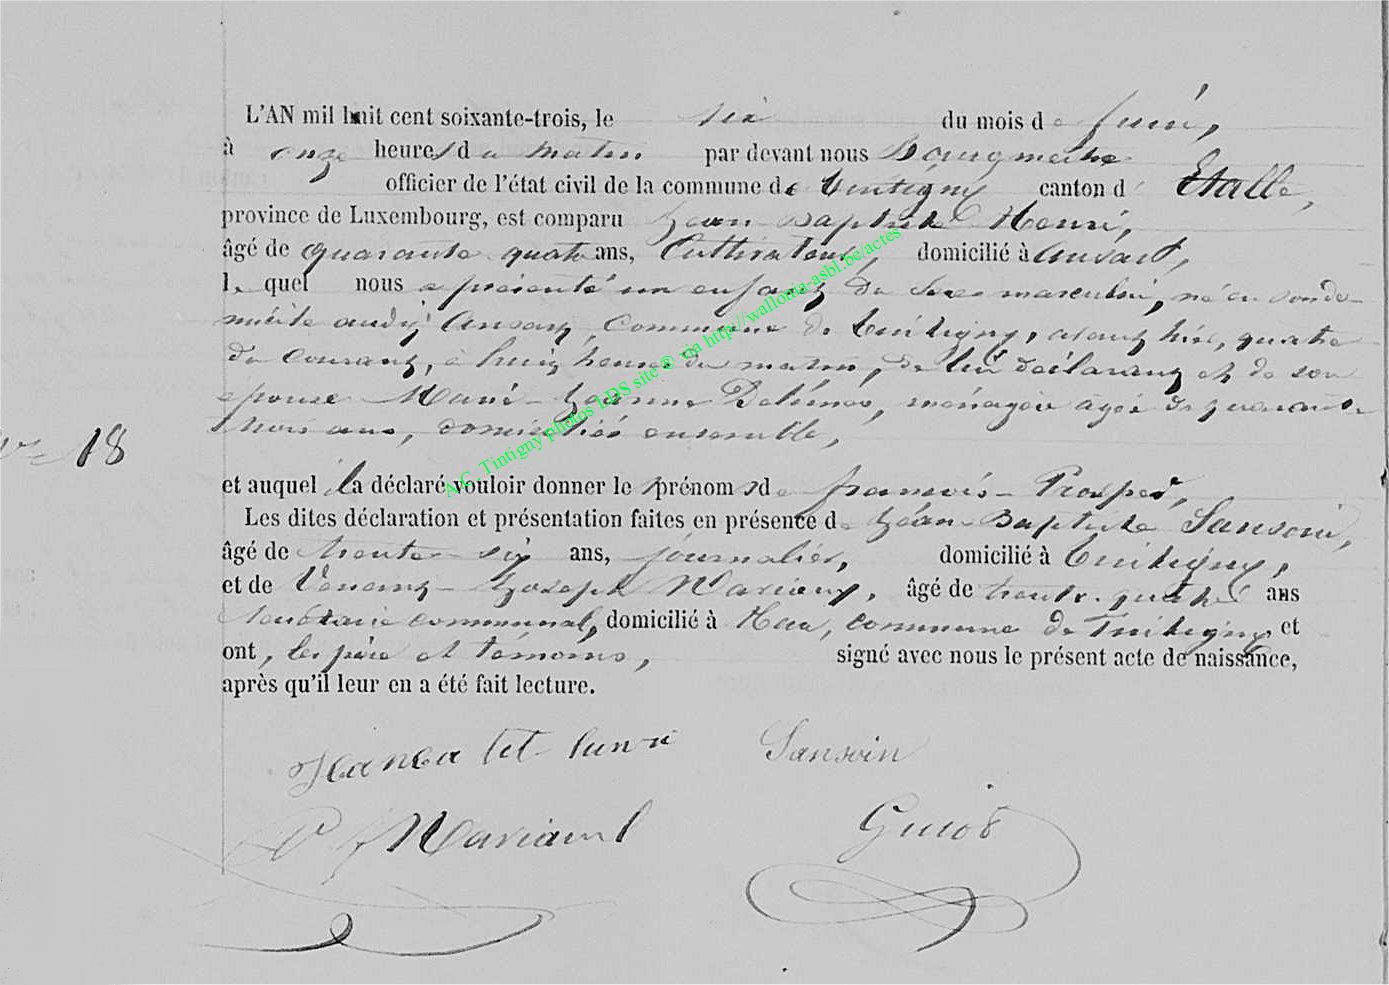 L'AN mil huit cent soixante-trois, le six du mois de juin,
à onze heures du matin par devant nous Bourgmestre
officier de l'état civil de la commune de Tintigny canton d'Etalle,
province de Luxembourg, est comparu Jean Baptiste Henri,
âgé de quarante quatre ans, Cultivateur, domicilié à Ansart,
le quel nous a présenté un enfant du sexe masculin, né en son do-
micile audit Ansart, Commune de Tintigny, avant hier, quatre
du courant, à huit heures du matin, de lui déclarant et de son
épouse Marie-Jeanne ménagère âgée de quarante
trois ans, domiciliés ensemble,
N° 18
et auquel il a déclaré vouloir donner les prénoms de françois-Prosper,
Les dites déclaration et présentation faites en présence de Jean-Baptiste Sansoin,
âgé de trente-six ans, journalier, domicilié à Tintigny,
et de Venant-Joseph âgé de trente-quatre ans
Secrétaire communal, domicilié à Han, commune de Tintigny, et
ont, les père et témoins, signé avec nous le présent acte de naissance,
après qu'il leur en a été fait lecture.
Sansoin
A.C. Tintigny photos LDS site © via http://wallonia-asbl.be/actes